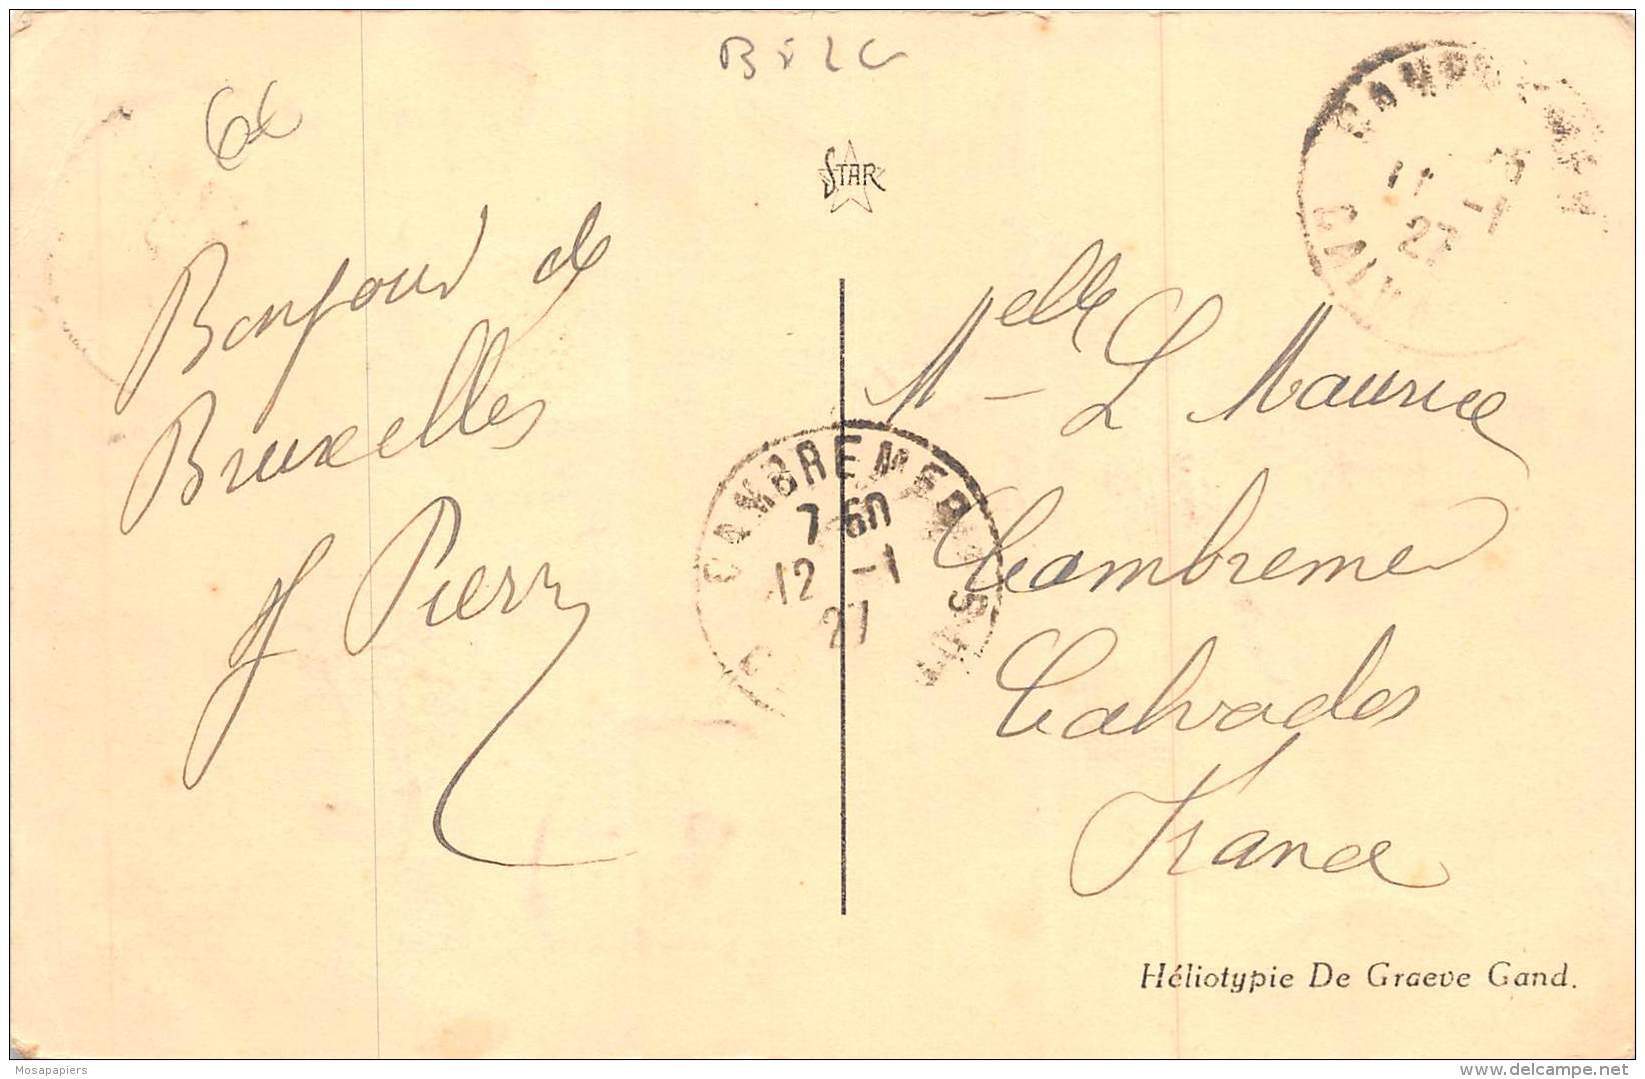 BELG
6€
STAR
Bonjour de
Bruxelles
Pierre
Melle - L Maurice
Cambremer
Calvados
France
CAMBREMER
7-50
12 -1
27
CAMBREMER
11 -1
27
CALV
Héliotypie De Graeve Gand.
Mosapapiers
delcampe.net